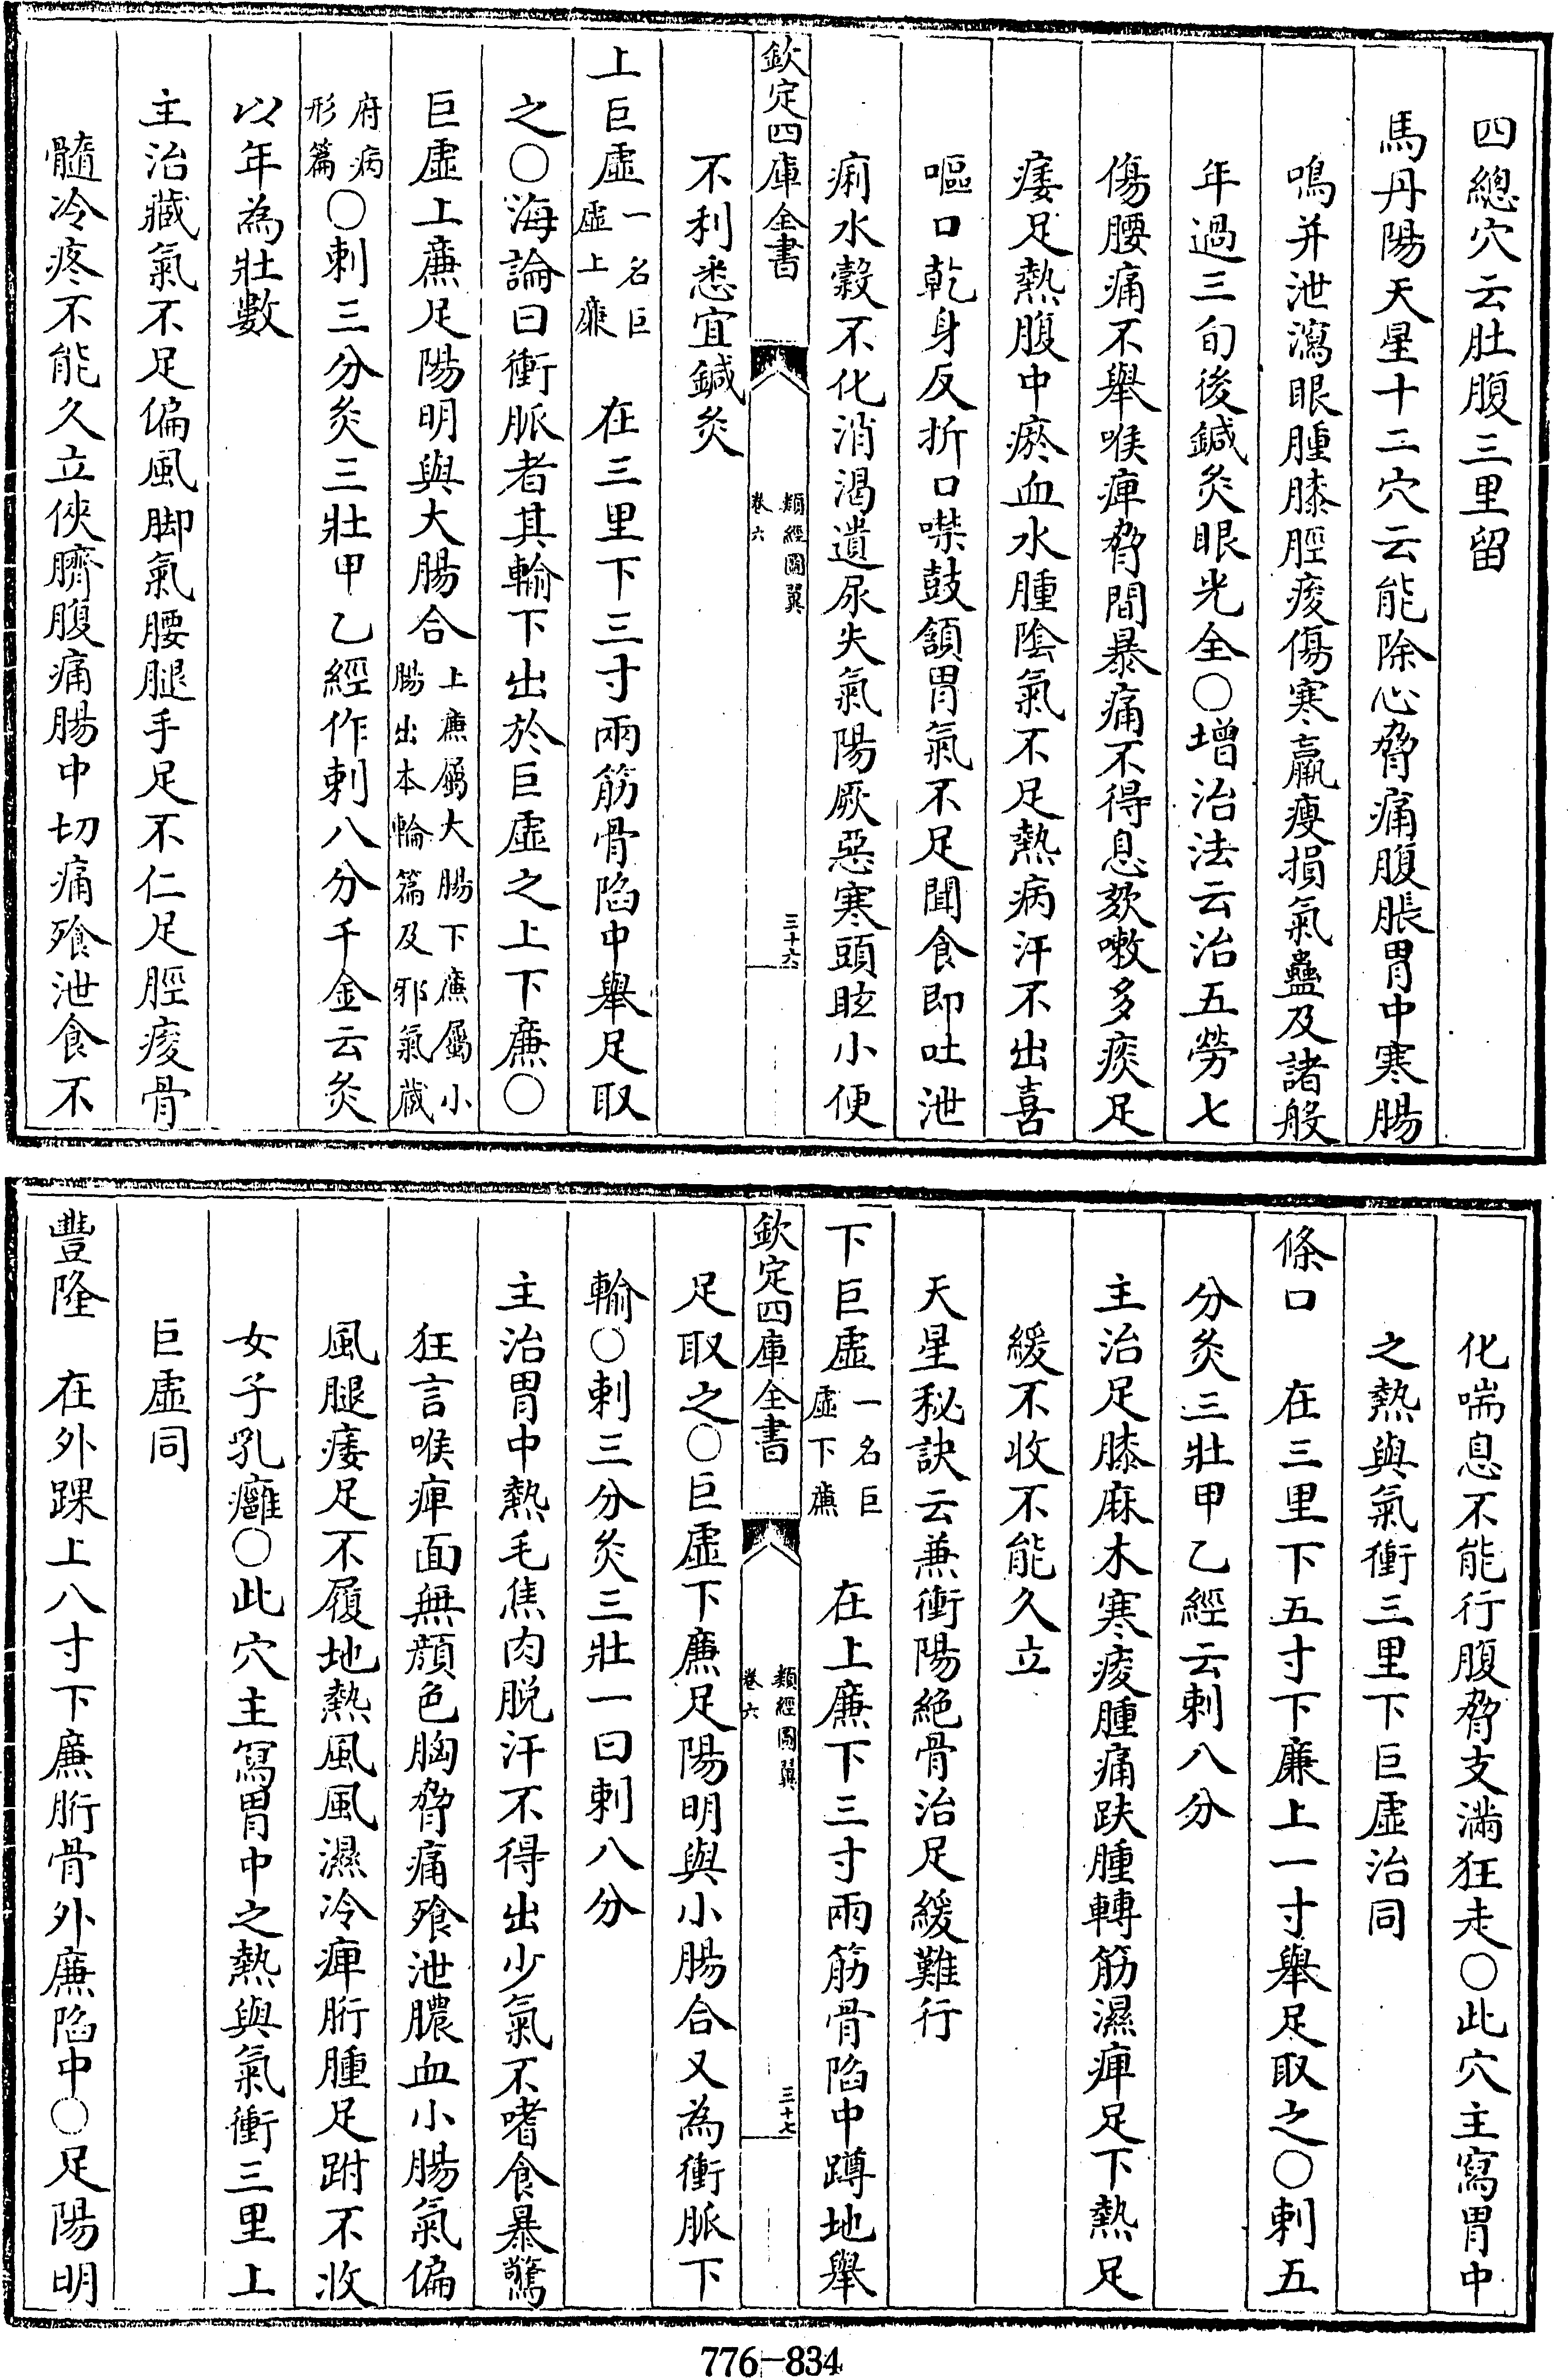 四總穴云肚腹三里留
馬丹陽天星十二穴云能除心脅痛腹脹胃中寒腸
鳴并泄瀉眼腫膝脛痠傷寒羸瘦損氣蠱及諸般
年過三旬後鍼灸眼光全○增治法云治五勞七
傷腰痛不舉喉痺脅間暴痛不得息欬嗽多痰足
痿足熱腹中瘀血水腫陰氣不足熱病汗不出喜
嘔口乾身反折口噤鼓頷胃氣不足聞食即吐泄
痢水穀不化消渴遺尿失氣陽厥惡寒頭眩小便
欽定四庫全書
類經圖翼
卷六
三十六
不利悉宜鍼灸
上巨虛一名巨虛上廉 在三里下三寸兩筋骨陷中舉足取
之○海論曰衝脈者其輸下出於巨虛之上下廉○
巨虛上廉足陽明與大腸合上廉屬大腸下廉屬小腸出本輸篇及邪氣藏
府病形篇○刺三分灸三壯甲乙經作刺八分千金云灸
以年為壯數
主治藏氣不足偏風脚氣腰腿手足不仁足脛痠骨
髓冷疼不能久立俠臍腹痛腸中切痛飱泄食不
化喘息不能行腹脅支滿狂走○此穴主寫胃中
之熱與氣衝三里下巨虛治同
條口 在三里下五寸下廉上一寸舉足取之○刺五
分灸三壯甲乙經云刺八分
主治足膝麻木寒痠腫痛趺腫轉筋濕痺足下熱足
緩不收不能久立
天星秘訣云兼衝陽絶骨治足緩難行
下巨虛一名巨虛下廉 在上廉下三寸兩筋骨陷中蹲地舉
欽定四庫全書
類經圖翼
卷六
三十七
足取之○巨虛下廉足陽明與小腸合又為衝脈下
輸○刺三分灸三壯一曰刺八分
主治胃中熱毛焦肉脱汗不得出少氣不嗜食暴驚
狂言喉痺面無顏色胸脅痛飱泄膿血小腸氣偏
風腿痿足不履地熱風風濕冷痺胻腫足跗不收
女子乳癰○此穴主寫胃中之熱與氣衝三里上
巨虛同
豐隆 在外踝上八寸下廉胻骨外廉陷中○足陽明
776-834